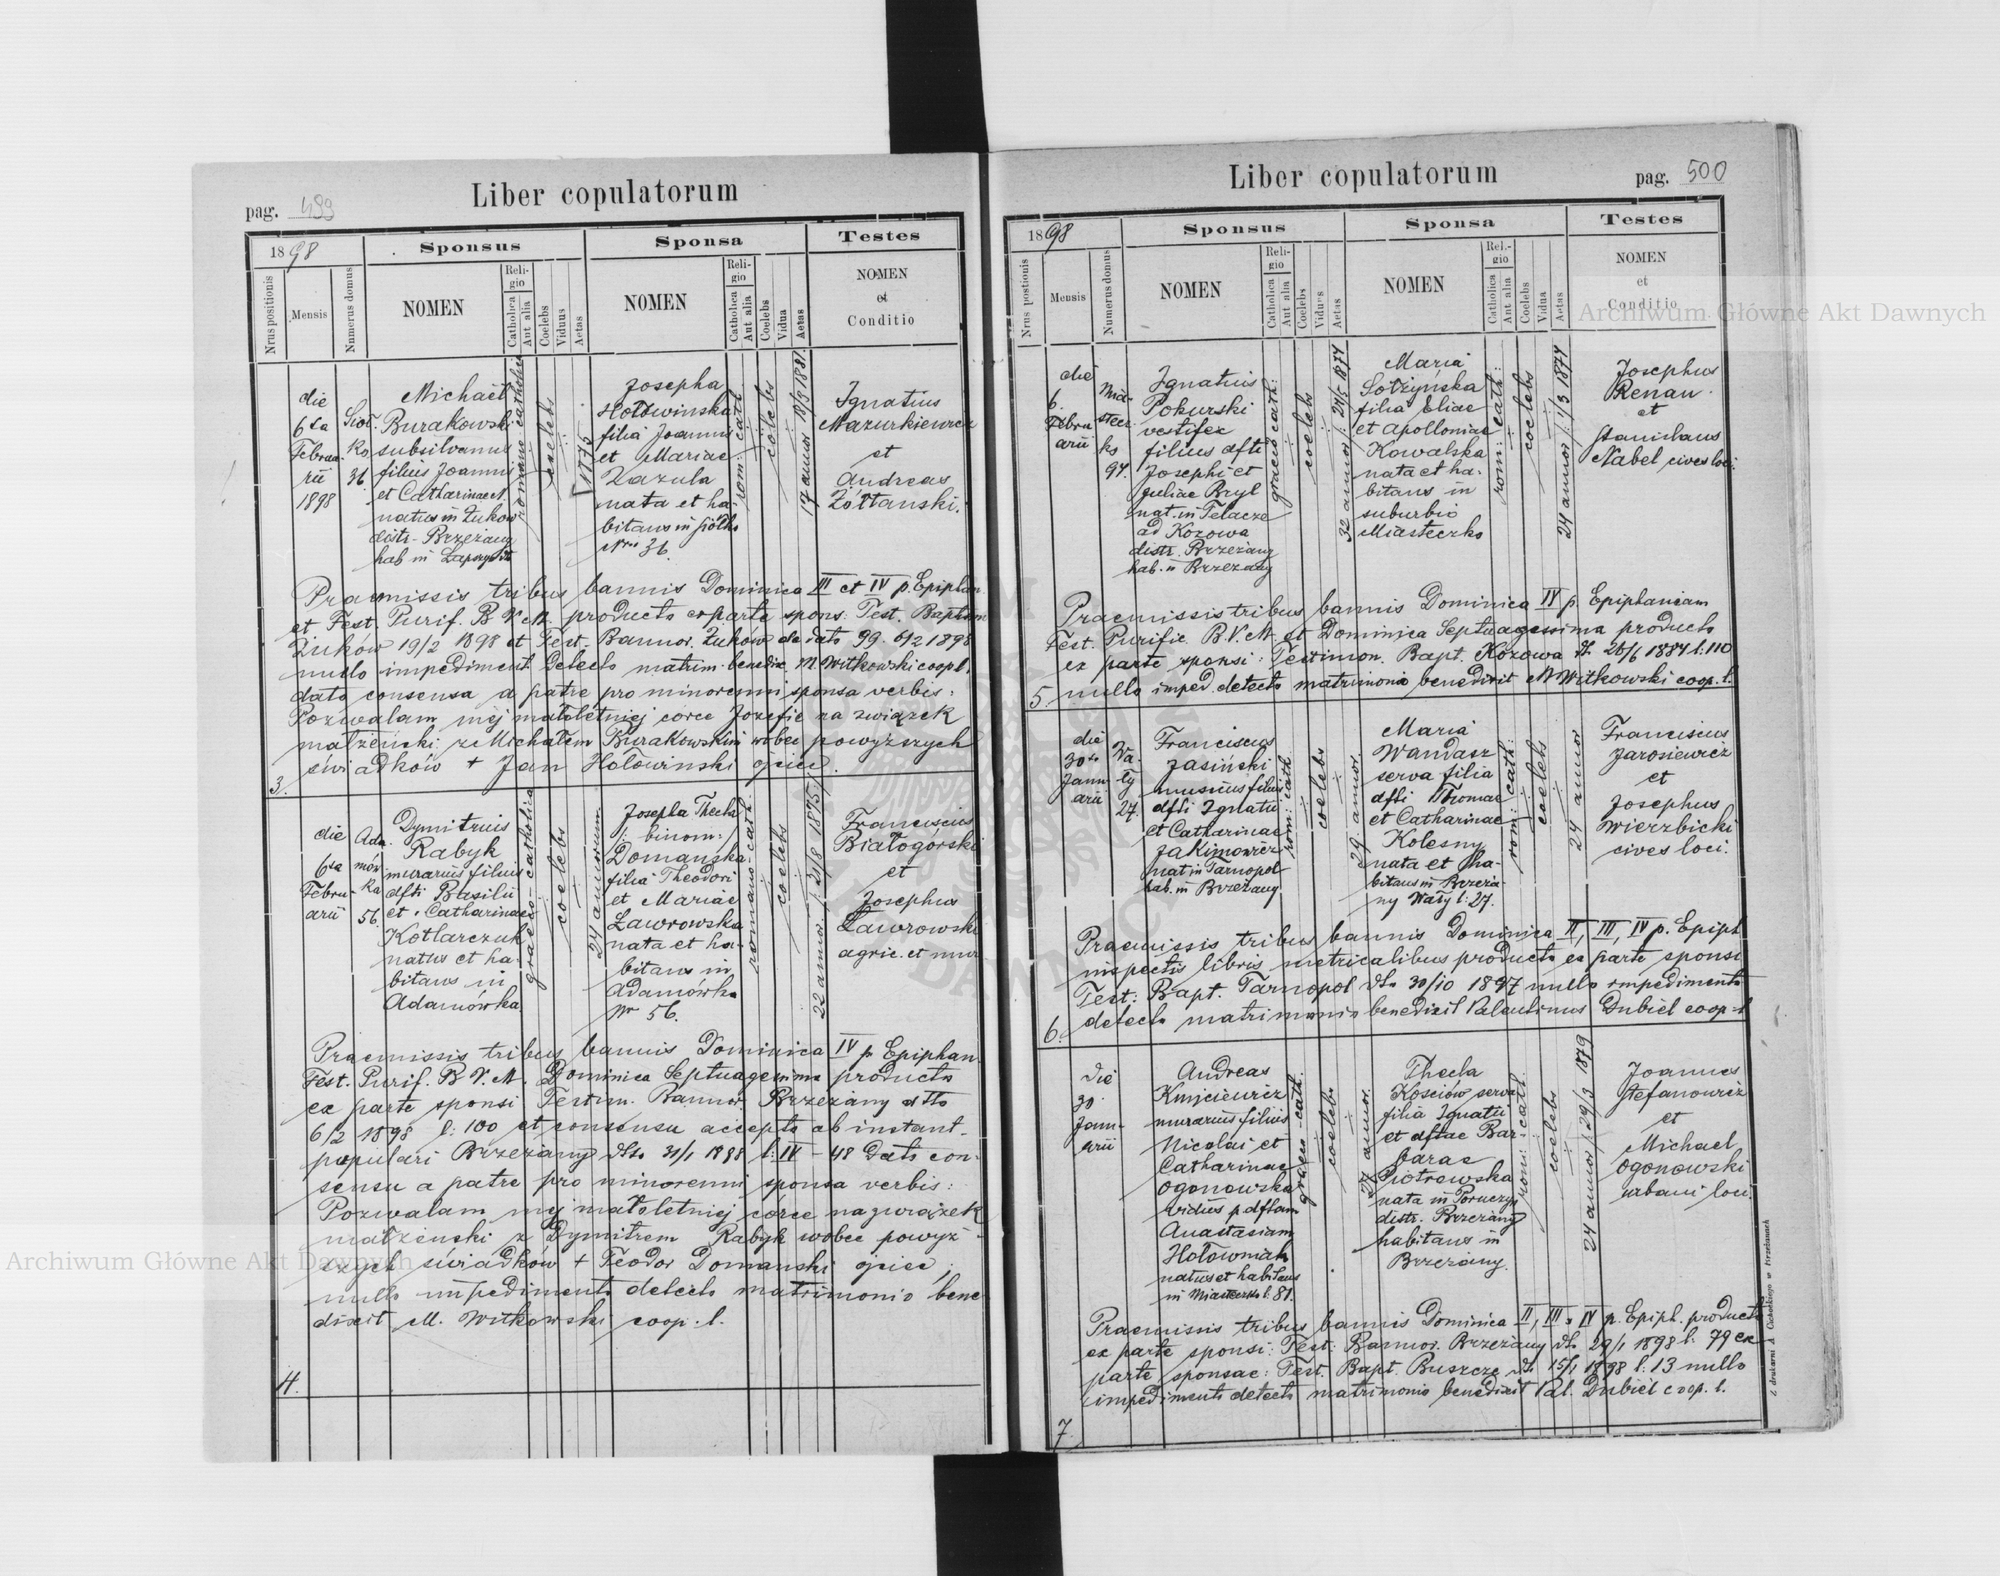 Liber copulatorum
pag. 499
18 98
Sponsus
Sponsa
Testes
Nrus positionis
Mensis
Numerus domus
NOMEN
Religio
Catholica
Aut alia
Coelebs
Viduus
Aetas
NOMEN
Religio
Catholica
Aut alia
Coelebs
Vidua
Aetas
NOMEN
et
Conditio
die
6ta
Februa
rii
1898
ko
36.
Michael
Burakowski
subsilvanus
filius Joannis
et Catharinae N.
natus in Żukow
distr. Brzeżany
hab in
romano catholica
coelebs
1875
Josepha
Hołowinska
filia Joannis
et Mariae
Zazula
nata et ha
bitans in
Nro 36
rom. cath
coelebs
17 annor 18/3 1881
Ignatius
Mazurkiewicz
et
Andreas
Żółtanski.
Praemissis tribus bannis Dominica III et IV p. Epiphan
et Fest. Purif. B V. M. producto ex parte spons. Test. Baptism
Żuków 19/2 1898 et Test. Bannor. Żuków de dato 99. 6/2 1898
nullo impediment. detecto matrim. benedix. M Witkowski coop l.
dato consensu a patre pro minorenni sponsa verbis:
Pozwalam mej małoletniej corce Jozefie na związek
małżeński z Michałem Burakowskim wobec powyższych
świadków + Jan Hołowinski ojciec.
3.
die
6ta
Febru-
arii
Ada
mów
ka
56.
Dymitrius
Rabyk
murarius filius
dfti Basilii
et Catharinae
Kotlarczuk
natus et ha-
bitans in
Adamówka.
graeco-catholica
coelebs
24 annorum
Josepha Thecla
/: binom:/
Domańska
filia Theodori
et Mariae
Ławrowska
nata et ha-
bitans in
Adamówka
Nr 56.
romano-cath.
coelebs
22 annor. /: 21/8 1875:/
Franciscus
Białogórski
et
Josephus
Ławrowski
agric. et mur
Praemissis tribus bannis Dominica IV p Epiphan.
Fest. Purif. B V. M. Dominica Septuagesima producto
ex parte sponsi Testim. Bannor. Brzeżany dtto
6/2 1898 l: 100 et consensu accepto ab instant.
populari Brzeżany dto 31/1 1898 l: IV - 48 Dato con-
sensu a patre pro minorenni sponsa verbis:
Pozwalam mej małoletniej córce na związek
małżenski z Dymitrem Rabyk wobec powyż-
szych świadków + Teodor Domanski ojciec,
nullo impedimento detecto matrimonio bene
dixit M. Witkowski coop. l.
4.
Liber copulatorum
pag. 500
18 98
Sponsus
Sponsa
Testes
Nrus postionis
Mensis
Numerus domus
NOMEN
Religio
Catholica
Aut alia
Coelebs
Viduus
Aetas
NOMEN
Religio
Catholica
Aut alia
Coelebs
Vidua
Aetas
NOMEN
et
Conditio
die
6.
Febru
arii
Mia-
stecz
ko
94.
Ignatius
Pokurski
vestifex
filius dfti
Josephi et
Juliae Bryl
nat. in Telacze
ad Kozowa
distr. Brzeżany
hab. in Brzeżany
graeco cath:
coelebs
32 annor /: 24/5 1874
Maria
Sotżyńska
filia Eliae
et Apolloniae
Kowalska
nata et ha-
bitans in
suburbio
Miasteczko
rom: cath:
coelebs
24 annor /: 1/3 1874
Josephus
Renan
et
Stanislaus
Nabel cives loci.
Praemissis tribus bannis Dominica IV p. Epiphaniam
Fest. Purific. B.V.M. et Dominica Septuagesima producto
ex parte sponsi: Testimon. Bapt. Kozowa dt. 26/6 1884 l. 110
nullo imped. detecto matrimonio benedixit M Witkowski coop. l.
5.
die
30to
Janu
arii
Wa-
ły
27.
Franciscus
Jasiński
musicus filius
dfti Ignatii
et Catharinae
Jakimowicz
nat in Tarnopol
hab. in Brzeżany
rom: cath:
coelebs
29 annor.
Maria
Wandasz
serva filia
dfti Thomae
et Catharinae
Kolesny
nata et ha-
bitans in Brzeża-
ny Wały l: 27.
rom: cath:
coelebs
24 annor
Franciscus
Jarosiewicz
et
Josephus
Wierzbicki
cives loci.
Praemissis tribus bannis Dominica II, III, IV p. Epiph
inspectis libris metricalibus producto ex parte sponsi
Test: Bapt. Tarnopol dto 30/10 1897 nullo impedimento
detecto matrimonio benedixit Valentinus Dubiel coop l.
6.
die
30
Janu-
arii
Andreas
Kmiciewicz
murarius filius
Nicolai et
Catharinae
Ogonowska
viduus p. dftam
Anastasiam
Hołowniak
natus et habitans
in Miasteczko l: 81.
graeco-cath.
coelebs
27 annor.
Thecla
Kosciów serva
filia Ignatii
et dftae Bar-
barae
Piotrowska
nata in Poruczyn
distr. Brzeżany
habitans in
Brzeżany.
rom: cath.
coelebs
24 annor /: 29/3 1879
Joannes
Stefanowicz
et
Michael
Ogonowski
urbani loci.
Praemissis tribus bannis Dominica II, III, IV p. Epiph. producto
ex parte sponsi: Test: Bannor. Brzeżany dto 29/1 1898 l: 79 ex
parte sponsae: Test. Bapt. Buszcze dto 15/1 1898 l: 13 nullo
impedimento detecto matrimonio benedixit Val. Dubiel coop. l.
7.
Z drukarni A Cichockiego w Brzeżanach
Archiwum Główne Akt Dawnych
Archiwum Główne Akt Dawnych